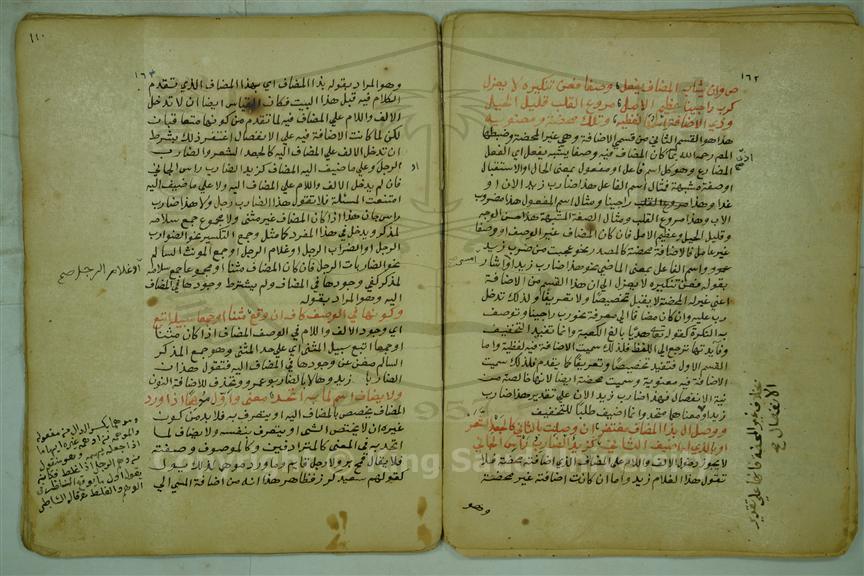 ١٦٢
ص وان يشابه المضاف يفعل وصفا فعن تنكيره لا يعزل
كرب راجينا عظيم الامل مروع القلب قليل الحيل
وذي الاضافة اسمها لفظيه وتلك محضة ومعنويه
هذا هو القسم الثاني من قسمي الاضافة وهي غير المحضة وضبطها
المص رحمه الله بما كان المضاف فيه وصفا يشبه يفعل اي الفعل
المضارع وهو كل اسم فاعل او مفعول بمعنى الحال او الاستقبال
او صفة مشبهة فمثال اسم الفاعل هذا ضارب زيد الان او
غدا وهذا راجينا ومثال اسم المفعول هذا مضروب
الاب وهذا مروع القلب ومثال الصفة المشبهة هذا حسن الوجه
وقليل الحيل وعظيم الامل فان كان المضاف غير الوصف او وصفا
غير عامل فالاضافة محضة كالمصدر نحو عجبت من ضرب زيد
واسم الفاعل بمعنى الماضي نحو هذا ضارب زيد امس واشار
بقوله فعن تنكيره لا يعزل الى ان هذا القسم من الاضافة
اعني غير المحضة لا يفيد تخصيصا ولا تعريفا ولذلك تدخل
رب عليه وان كان مضافا الى معرفة نحو رب راجينا وتوصف
به النكرة كقوله تعا هديا بالغ الكعبة وانما تفيد التخفيف
وفايدتها ترجع الى اللفظ فلذلك سميت الاضافة فيه لفظية واما
القسم الاول فتفيد تخصيصا وتعريفا كما تقدم فلذلك سميت
الاضافة فيه معنوية وسميت محضة ايضا لانها خالصة من
نية الانفصال فهذا ضارب زيد الان على تقدير هذا ضارب
زيدا ومعناهما متحد وانما اضيف طلبا للتخفيف
ووصل ال بذا المضاف مغتفر ان وصلت بالثاني كالجعد الشعر
او بالذي له اضيف الثاني كزيد الضارب راس الجاني
لا يجوز دخول الالف واللام على المضاف الذي اضافته محضة فلا
تقول هذا الغلام زيد واما ان كانت اضافة غير محضة
وهو
بخلاف غير المحضة فانها على تقدير
الانفصال صح
١١٠
١٦٣
وهو المراد بقوله بذا المضاف اي بهذا المضاف الذي تقدم
الكلام فيه قبل هذا البيت فكان القياس ايضا ان لا تدخل
الالف واللام على المضاف فيه لما تقدم من كونهما متعاقبان
لكن لما كانت الاضافة فيه على الانفصال اغتفر ذلك بشرط
ان تدخل الالف على المضاف اليه كالجعد الشعر والضارب
الرجل وعلى ما ضيف اليه المضاف كزيد الضارب راس الجاني
فان لم يدخل الالف واللام على المضاف اليه ولا على ما ضيف اليه
امتنعت المسئلة فلا تقول هذا الضارب رجل ولا هذا ضارب
راس جان هذا اذا كان المضاف غير مثنى ولا مجموع جمع سلامة
لمذكر ويدخل في هذا المفرد كما مثل وجمع التكسير نحو الضوارب
الرجل او الضراب الرجل او غلام الرجل او جمع المونث السالم
نحو الضاربات الرجل فان كان المضاف مثنا او مجموعا جمع سلامة
لمذكر كفى وجودها في المضاف ولم يشترط وجودها في المضاف
اليه وهو المراد بقوله
وكونها في الوصف كاف ان وقع مثنا او جمعا سبيله اتبع
اي وجود الالف واللام في الوصف المضاف اذا كان مثنا
او جمعا اتبع سبيل المثنى اي على حد المثنى وهو جمع المذكر
السالم مغن عن وجودها في المضاف اليه فتقول هذان
الضاربا زيد وهاولا الضاربو عمرو وتحذف للاضافة النون
ولا يضاف اسم لما به اتحد معنى واول موهما اذا ورد
المضاف يتخصص بالمضاف اليه او يتعرف به فلا بد من كون
غيره اذ لا يتخصص الشي او يتعرف بنفسه ولا يضاف لما
اتحد به في المعنى كالمترادفين وكالموصوف وصفته
فلا يقال قمح بر ولا رجل قايم وما ورد موهما لذلك فمؤول
كقولهم سعيد كرز فظاهر هذا انه من اضافة الشي الى
او غلام الرجل صح